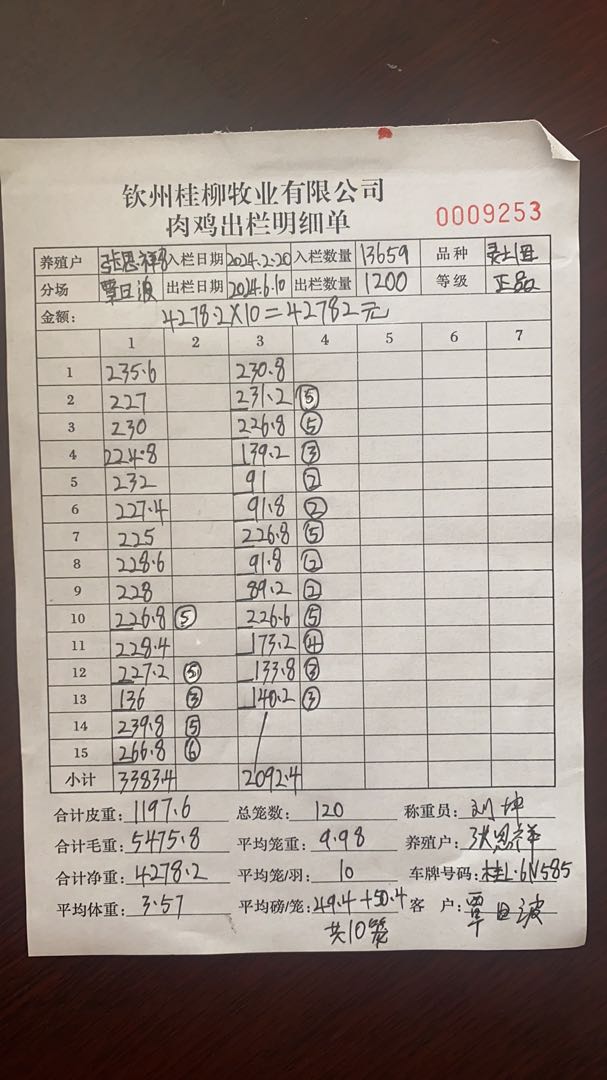 钦州桂柳牧业有限公司
肉鸡出栏明细单
0009253
养殖户 张思祥 入栏日期 2024.2.20 入栏数量 13659 品种
分场 覃日波 出栏日期 2024.6.10 出栏数量 1200 等级 正品
金额: 4278.2×10=42782元
1 2 3 4 5 6 7
1 235.6 230.8
2 227 231.2 ⑤
3 230 226.8 ⑤
4 224.8 139.2 ③
5 232 91 ②
6 227.4 91.8 ②
7 225 226.8 ⑤
8 228.6 91.8 ②
9 228 89.2 ②
10 226.8 ⑤ 226.6 ⑤
11 228.4 173.2 ④
12 227.2 ⑤ 133.8 ③
13 136 ③ 140.2 ③
14 239.8 ⑤
15 266.8 ⑥
小计 3383.4 2092.4
合计皮重: 1197.6 总笼数: 120 称重员: 刘坤
合计毛重: 5475.8 平均笼重: 9.98 养殖户: 张思祥
合计净重: 4278.2 平均笼/羽: 10 车牌号码: 桂L·6N585
平均体重: 3.57 平均磅/笼: 49.4+50.4 客 户: 覃日波
共10笼